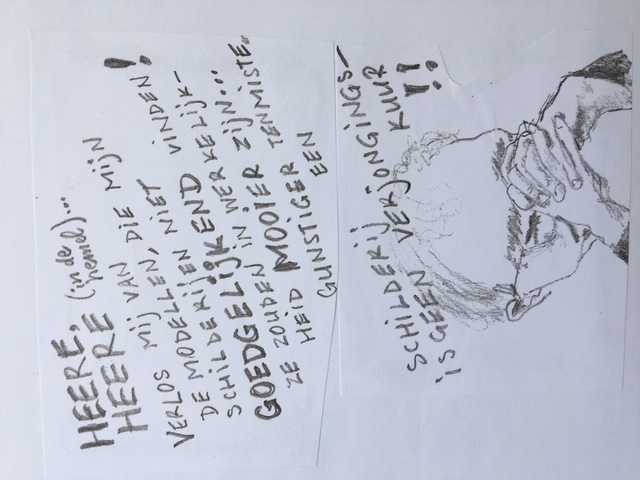 HEERE,
HEERE (in de hemel)...
VERLOS MIJ VAN
DE MODELLEN, DIE MIJN
SCHILDERIJEN NIET
GOEDGELIJKEND VINDEN!
ZE ZOUDEN IN WERKELIJK-
HEID MOOIER ZIJN...
GUNSTIGER TENMISTE.
EEN
SCHILDERIJ
IS GEEN VERJONGINGS-
KUUR
!!